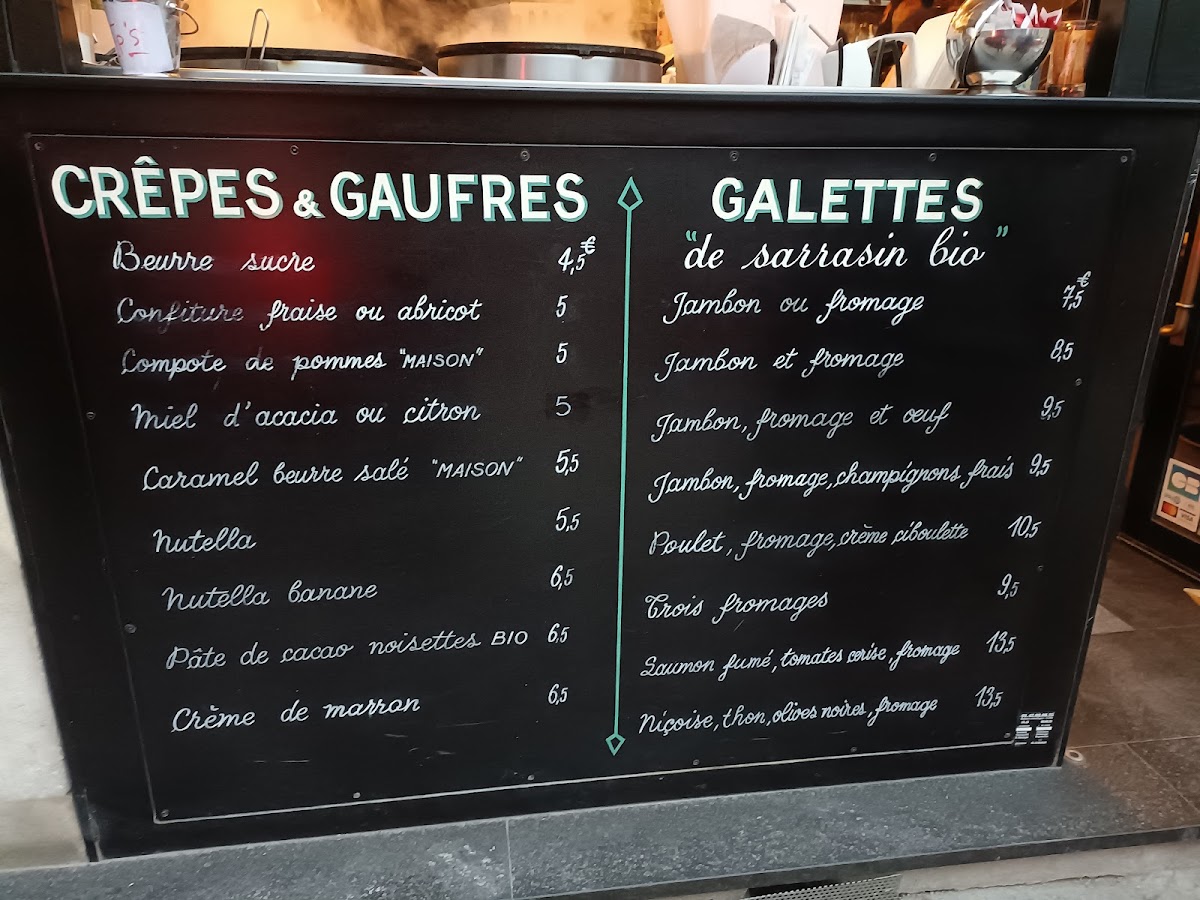 CRÊPES & GAUFRES
Beurre sucre 4,5€
Confiture fraise ou abricot 5
Compote de pommes "MAISON" 5
Miel d'acacia ou citron 5
Caramel beurre salé "MAISON" 5,5
Nutella 5,5
Nutella banane 6,5
Pâte de cacao noisettes BIO 6,5
Crème de marron 6,5
GALETTES
"de sarrasin bio"
Jambon ou fromage 7,5€
Jambon et fromage 8,5
Jambon, fromage et oeuf 9,5
Jambon, fromage, champignons frais 9,5
Poulet, fromage, crème ciboulette 10,5
Trois fromages 9,5
Saumon fumé, tomates cerise, fromage 13,5
Niçoise, thon, olives noires, fromage 13,5